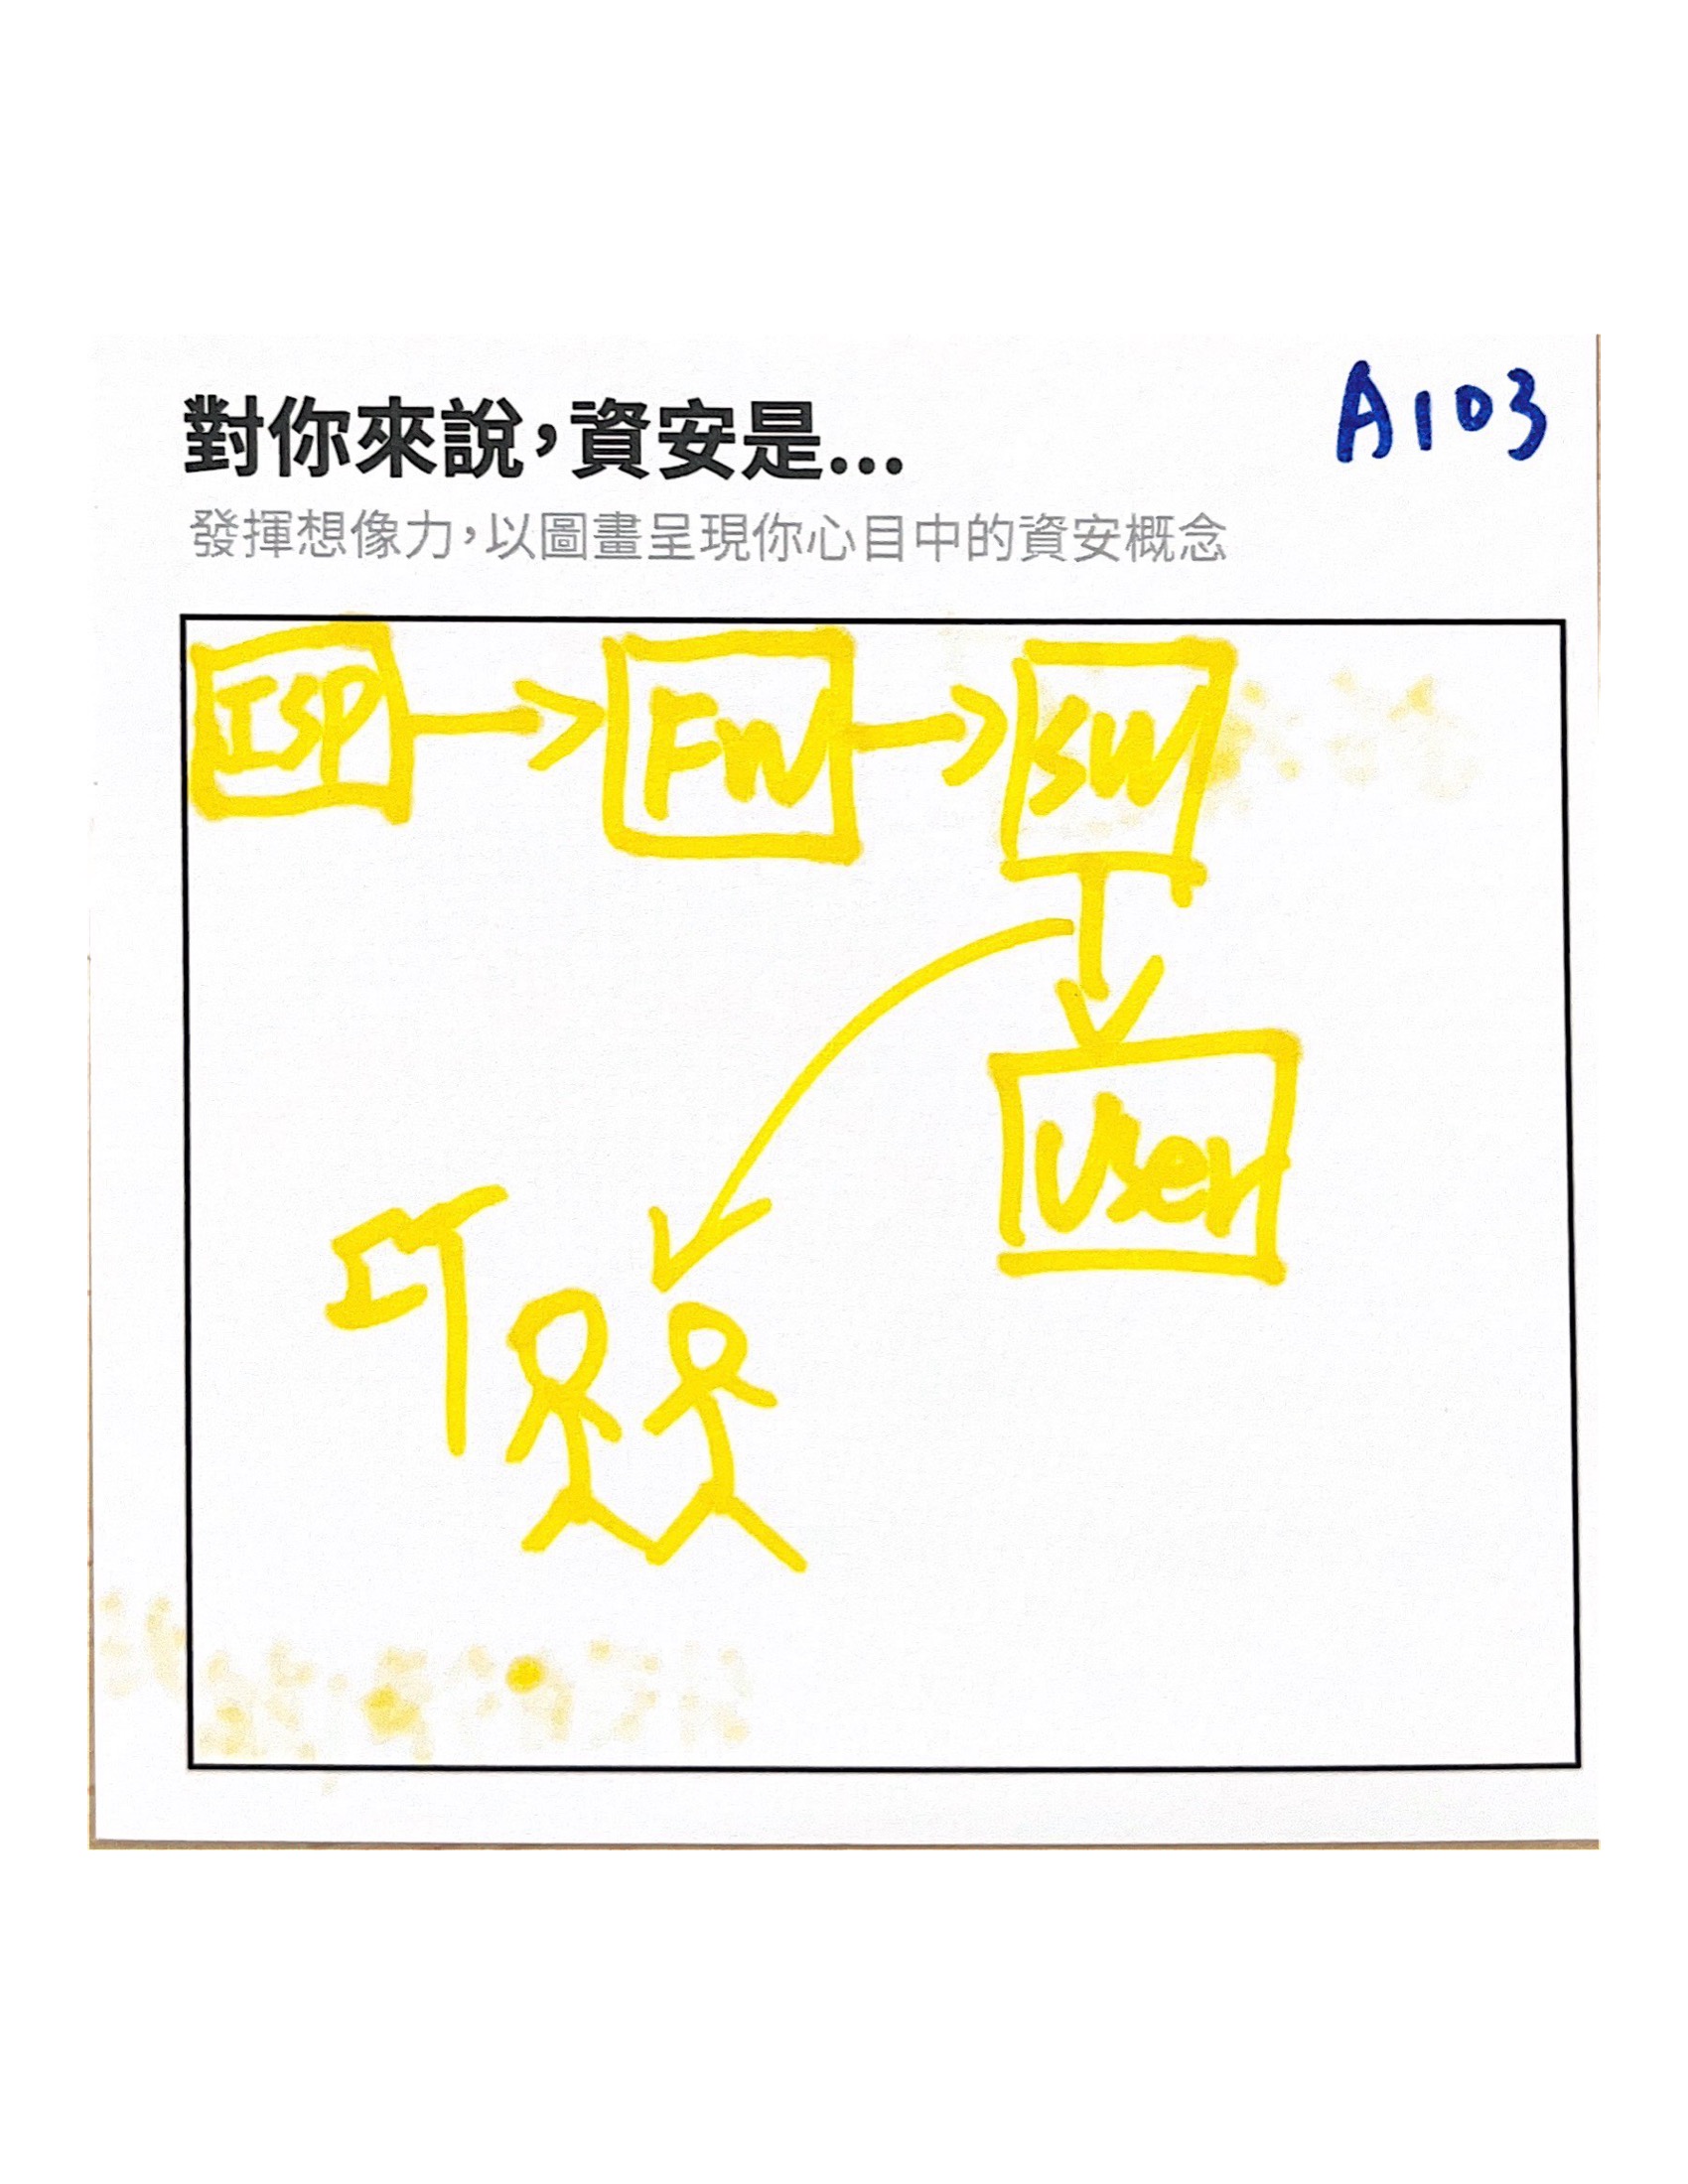 對你來說,資安是...
A103
發揮想像力,以圖畫呈現你心目中的資安概念
ISP
FW
SW
User
IT